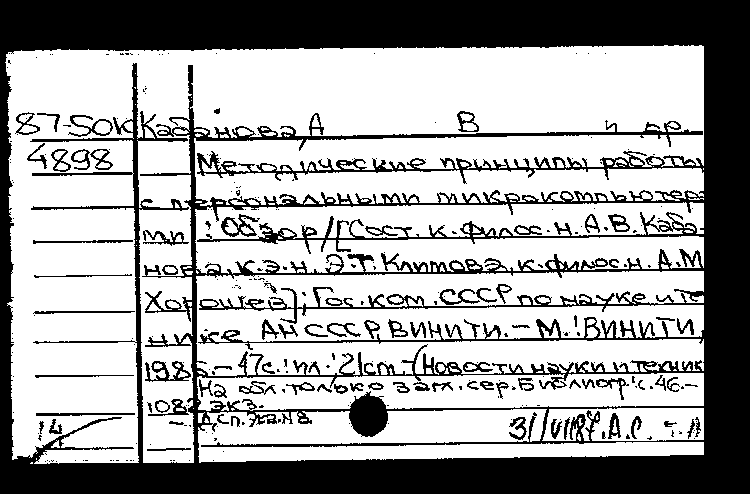 87-50К Кабанова, А В и др.
4898 Методические принципы работы
с персональными микрокомпьютера
ми : Обзор / [Сост. к. филос. н. А.В. Каба-
нова, к.э.н. Э.Т. Климова, к. филос. н. А.М
Хорошев]; Гос. ком. СССР по науке и те
нике, АН СССР, ВИНИТИ. - М. : ВИНИТИ,
1986. - 47с. : ил. ; 21cm. - (Новости науки и техник
На обл. только загл. сер. Библиогр.: с. 46-
1082 экз.
- Д.Сп. Экз. N 8
14 31/VII87. А.С. т.п